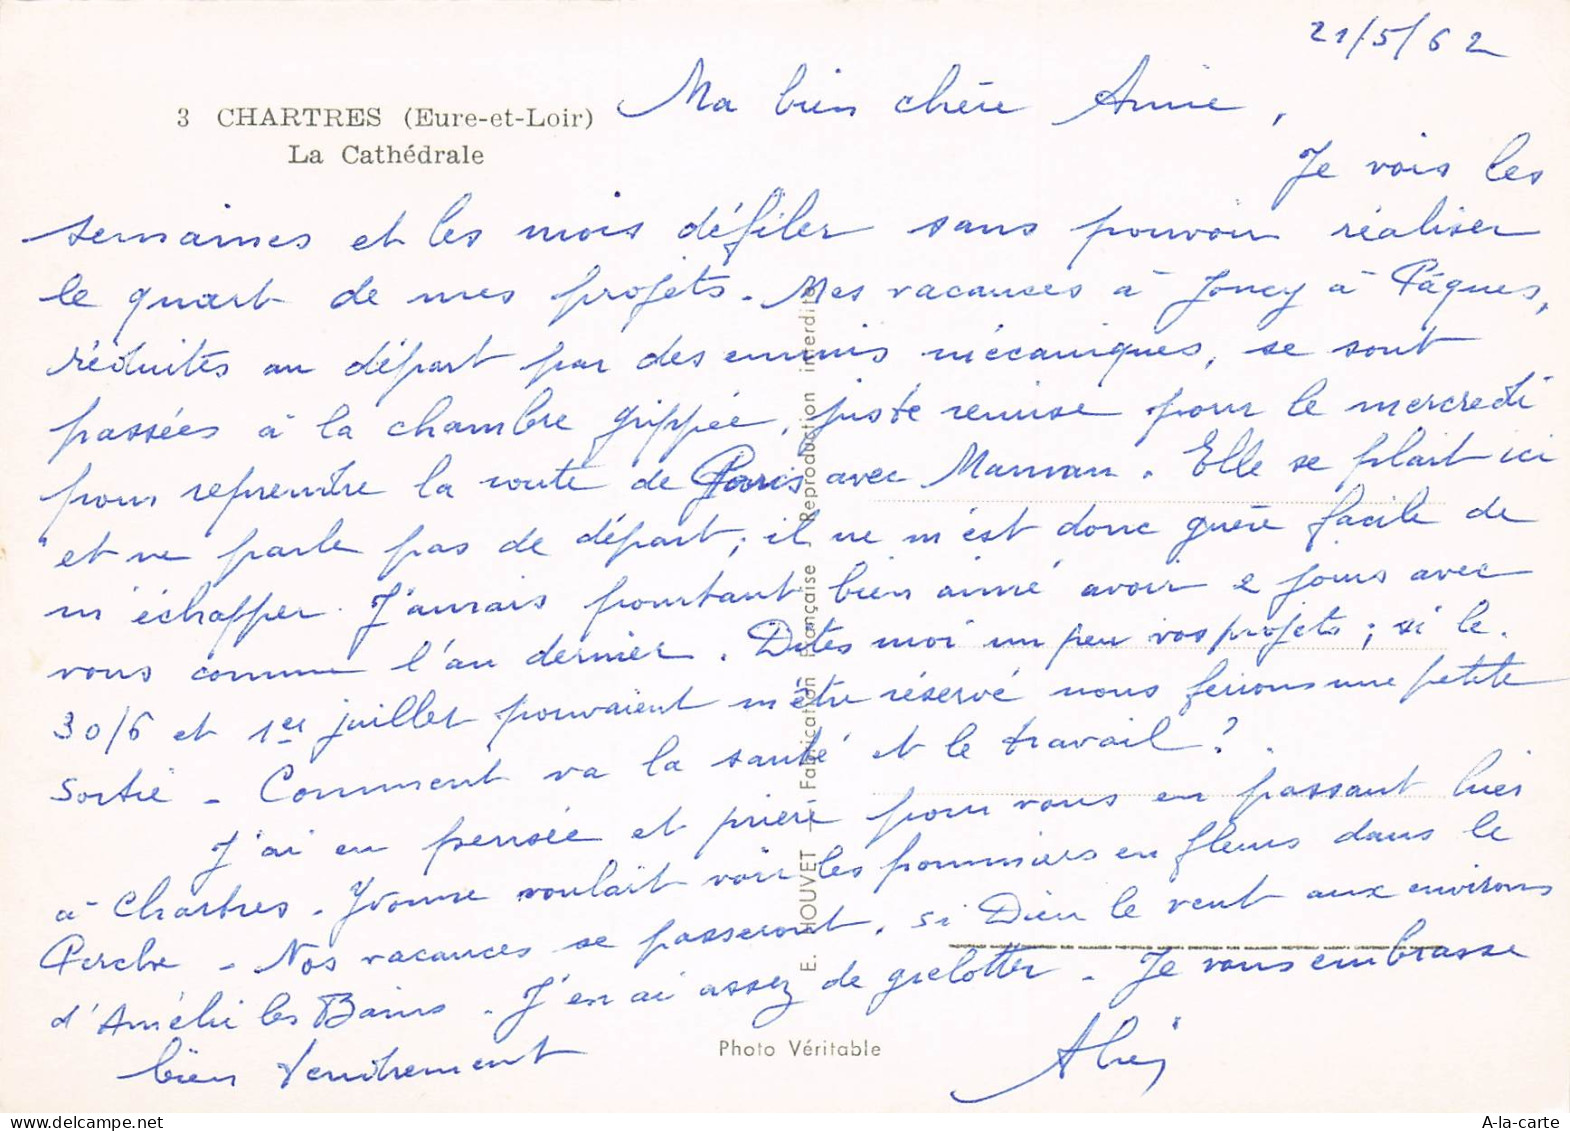 21/5/62
3 CHARTRES (Eure-et-Loir)
La Cathédrale
Ma bien chère Annie,
Je vois les
semaines et les mois défiler sans pouvoir réaliser
le quart de mes projets. Mes vacances à Joncy à Pâques,
réduites au départ par des ennuis mécaniques, se sont
passées à la chambre grippée, juste remise pour le mercredi
pour reprendre la route de Paris avec Maman. Elle se plait ici
et ne parle pas de départ; il ne m'est donc guère facile de
m'échapper. J'aurais pourtant bien aimé avoir 2 jours avec
vous comme l'an dernier. Dites moi un peu vos projets; si le
30/6 et 1er juillet pouvaient m'être réservé nous ferions une petite
sortie - Comment va la santé et le travail?
J'ai eu pensée et prière pour vous en passant hier
à Chartres. Yvonne voulait voir les pommiers en fleurs dans le
Perche - Nos vacances se passeront, si Dieu le veut aux environs
d'Amélie les Bains. J'en ai assez de grelotter - Je vous embrasse
bien tendrement
E. HOUVET — Fabrication Française Reproduction interdite
Photo Véritable
A-la-carte